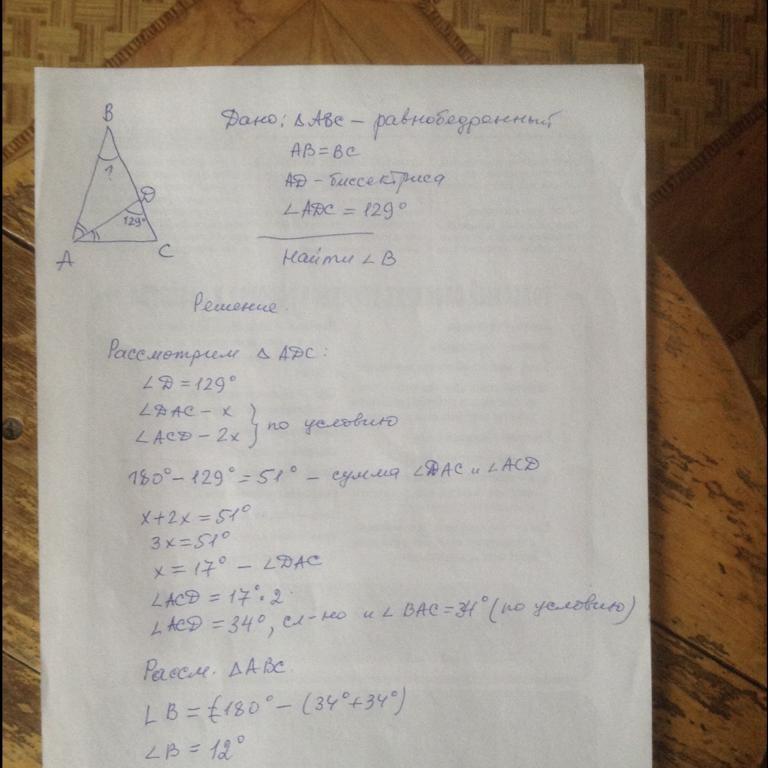 B
Дано: △ABC – равнобедренный
AB = BC
?
AD – биссектриса
D
129°
∠ADC = 129°
A
C
Найти ∠B
Решение.
Рассмотрим △ADC:
∠D = 129°
∠DAC – x
∠ACD – 2x } по условию
180° – 129° = 51° – сумма ∠DAC и ∠ACD
x + 2x = 51°
3x = 51°
x = 17° – ∠DAC
∠ACD = 17° · 2
∠ACD = 34°, сл-но и ∠BAC = 34° (по условию)
Рассм. △ABC.
∠B = 180° – (34° + 34°)
∠B = 12°